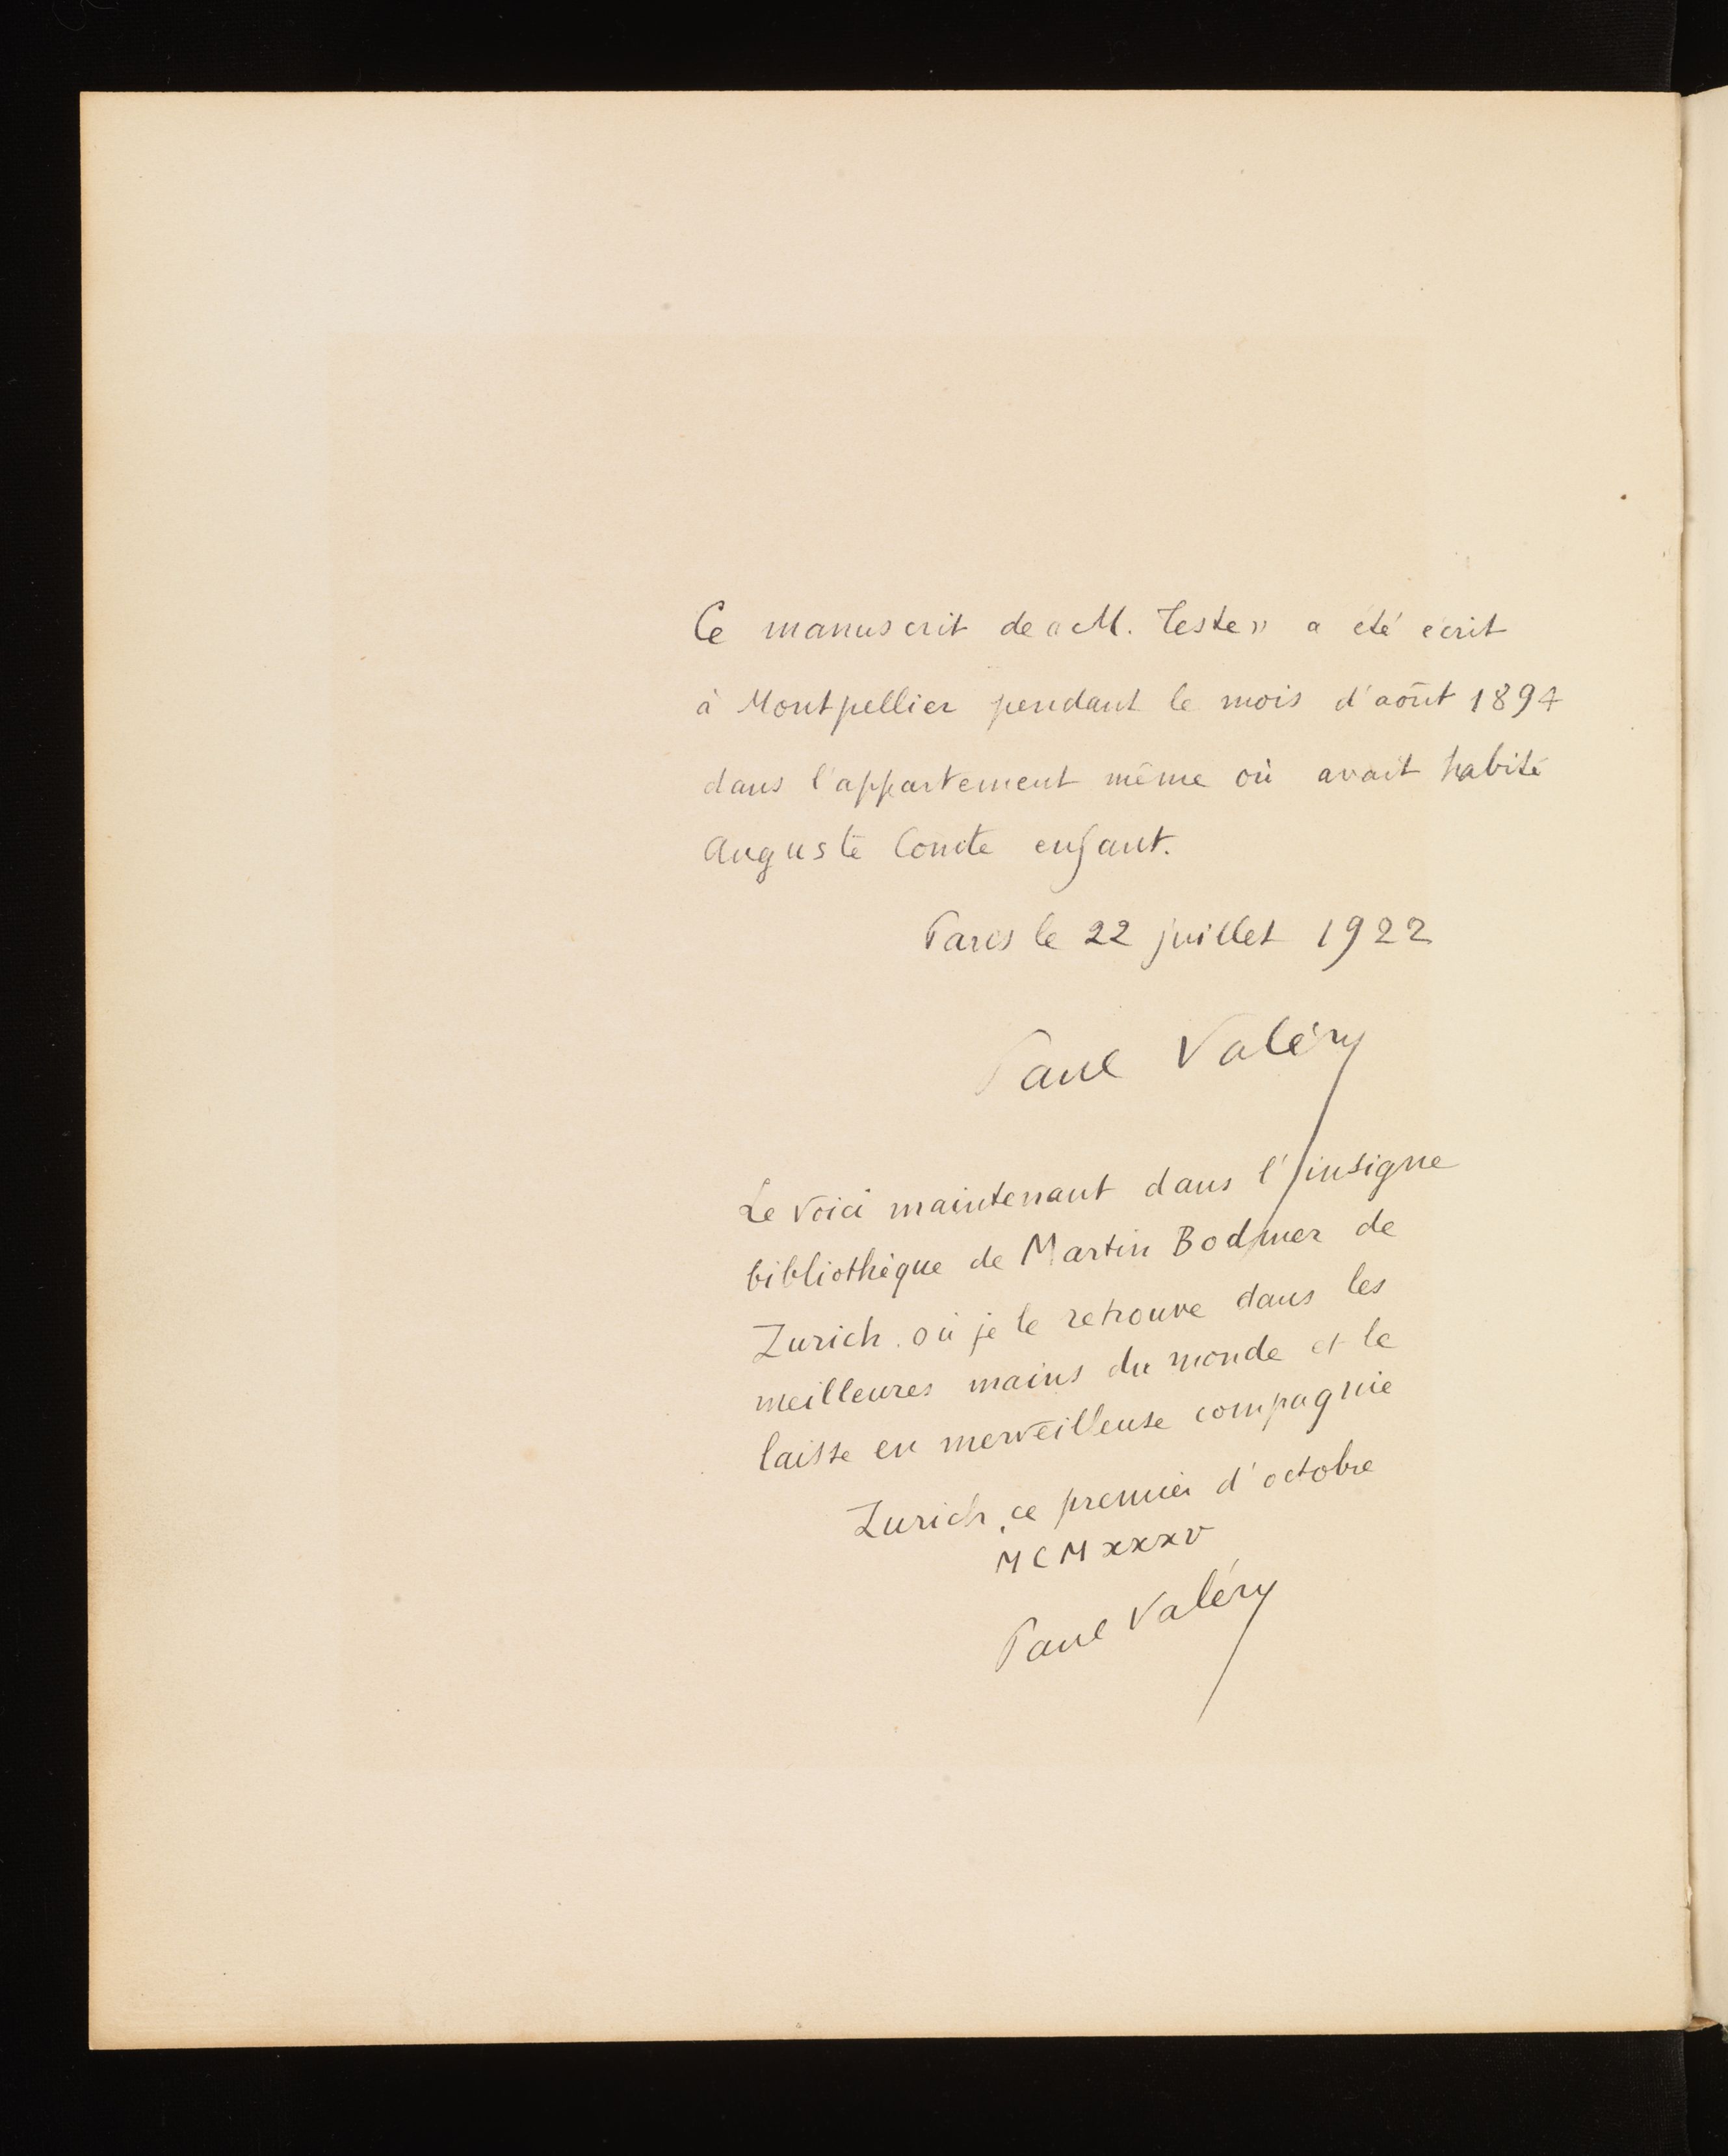 Ce manuscrit de «M. Teste» a été écrit
à Montpellier pendant le mois d'août 1894
dans l'appartement même où avait habité
Auguste Comte enfant.
Paris le 22 juillet 1922
Paul Valéry
Le voici maintenant dans l'insigne
bibliothèque de Martin Bodmer de
Zurich. où je le retrouve dans les
meilleures mains du monde et le
laisse en merveilleuse compagnie
Zurich, ce premier d'octobre
MCMXXXV
Paul Valéry